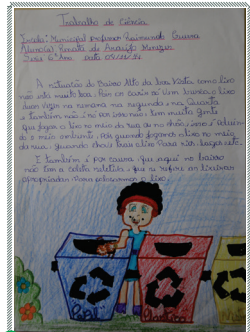 Trabalho de Ciência
Escola Municipal professor Raimundo Guerra
Aluno(a) Renata de Araújo Menezes
Série 6º Ano Data 09/11/
A situação do Bairro Alto da boa Vista com o lixo
não esta muito boa. Tem os carin as vem buscá o lixo
duas vezes na semana na segunda e na Quarta
e também não é no por isso não; tem muita gente
que jogar o lixo no meio da rua ou no chão e isso é
o meio ambiente, Pois quando jogamos o lixo no meio
da rua, quando chove leva o lixo Para rios lagos etc.
E também é por causa que aqui no bairro
não tem a coleta seletiva que se refere as lixeiras
apropriadas Para colocarmos o lixo.
Papel Plástico M